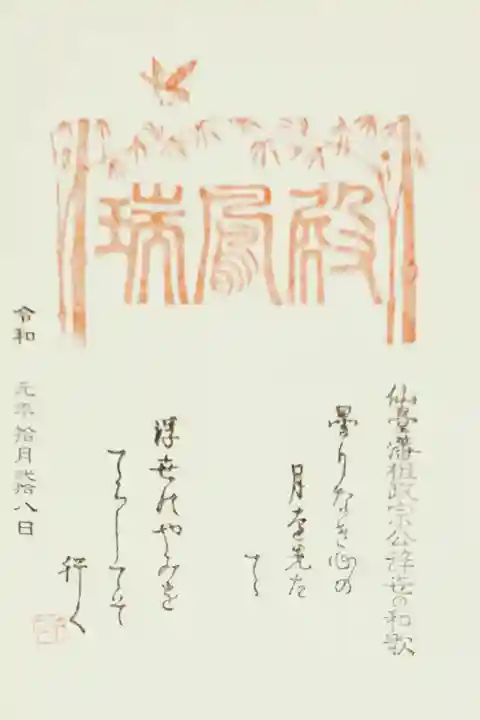 瑞鳳殿
仙臺藩祖政宗公辞世の和歌
曇りなき心の
月を先だ
てゝ
浮世のやみを
てらしてぞ
行く
令和 元年拾月弐拾八日